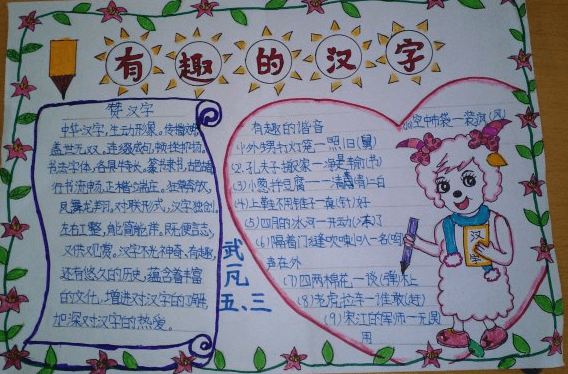 有趣的汉字
赞汉字
中华汉字,生动形象。传播文明,
盖世无双,连缀成句,顿挫抑扬。
书法字体,各具特长,篆隶古朴,
行书流畅,正楷端庄。狂草奔放,
凤舞龙翔。对联形式,汉字独创。
左右工整,能简能详。既便言志,
又供观赏。汉字不光神奇、有趣,
还有悠久的历史,蕴含着丰富
的文化,增进对汉字的了解,
加深对汉字的热爱。
武一凡
五、三
有趣的谐音
(1)外甥打灯笼一照旧(舅)
(2)孔夫子搬家一净是输(书)
(3)小葱拌豆腐一一清二白
(4)上鞋不用锥子一真(针)好
(5)四月的冰河一开动(冻)了
(6)隔着门缝吹喇叭一名(鸣)
声在外
(7)四两棉花一谈(弹)不上
(8)老虎拉车一谁敢(赶)
(9)宋江的军师一无(吴)
用
(10)空中布袋一装疯(风)
汉字